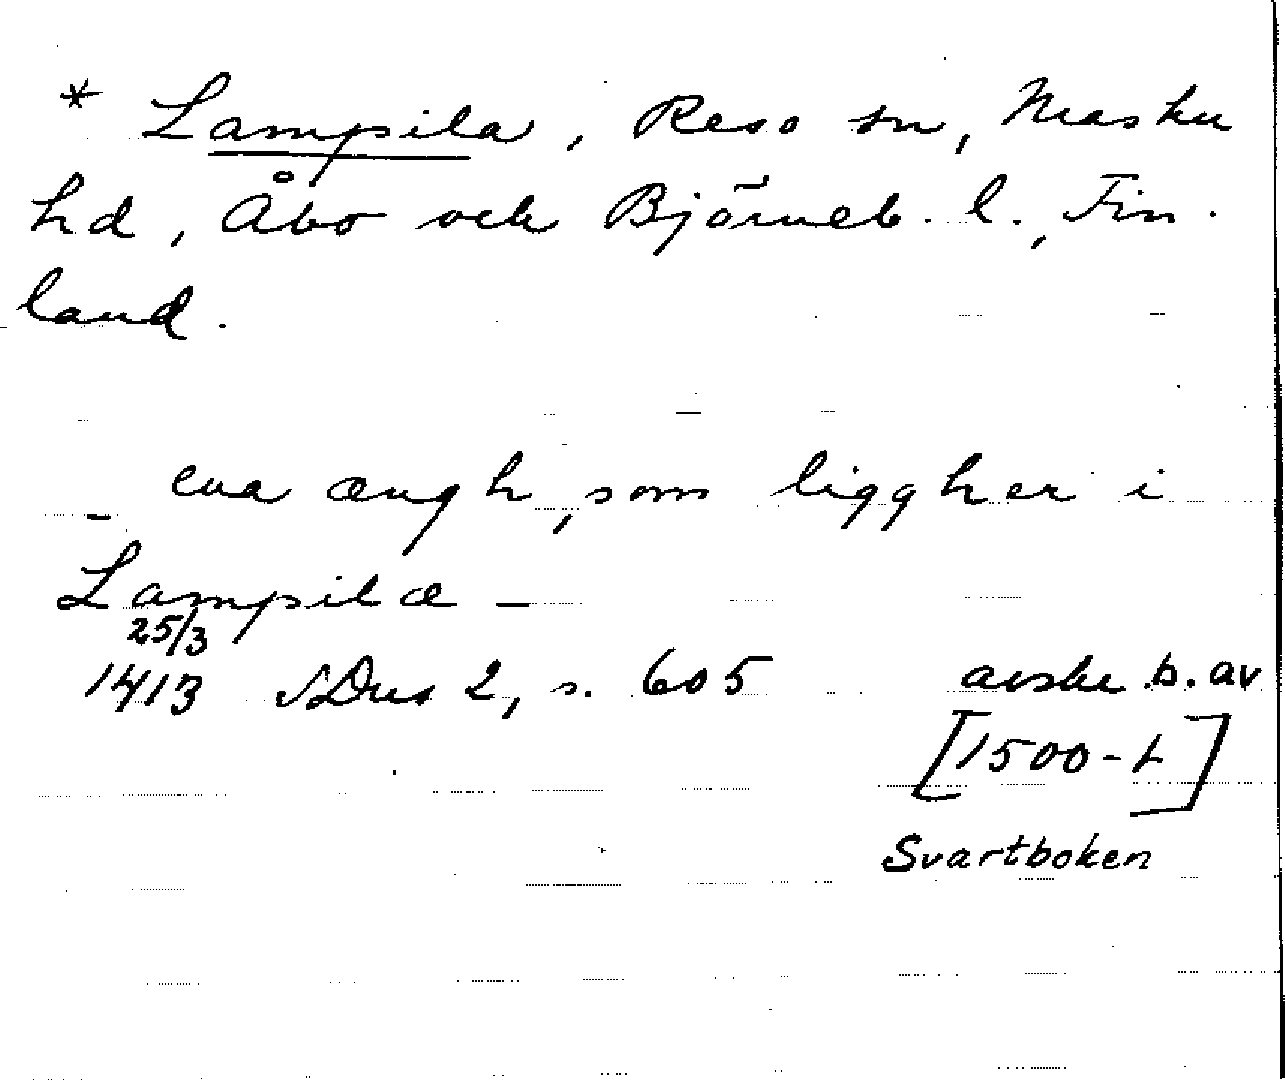 * Lampila, Reso sn, Masku
hd, Åbo och Björneb. l., Fin-
land.
ena ængh, som liggher i
Lampilæ —
25/3
1413 SDns 2, s. 605 avskr. b. av
[1500-t]
Svartboken